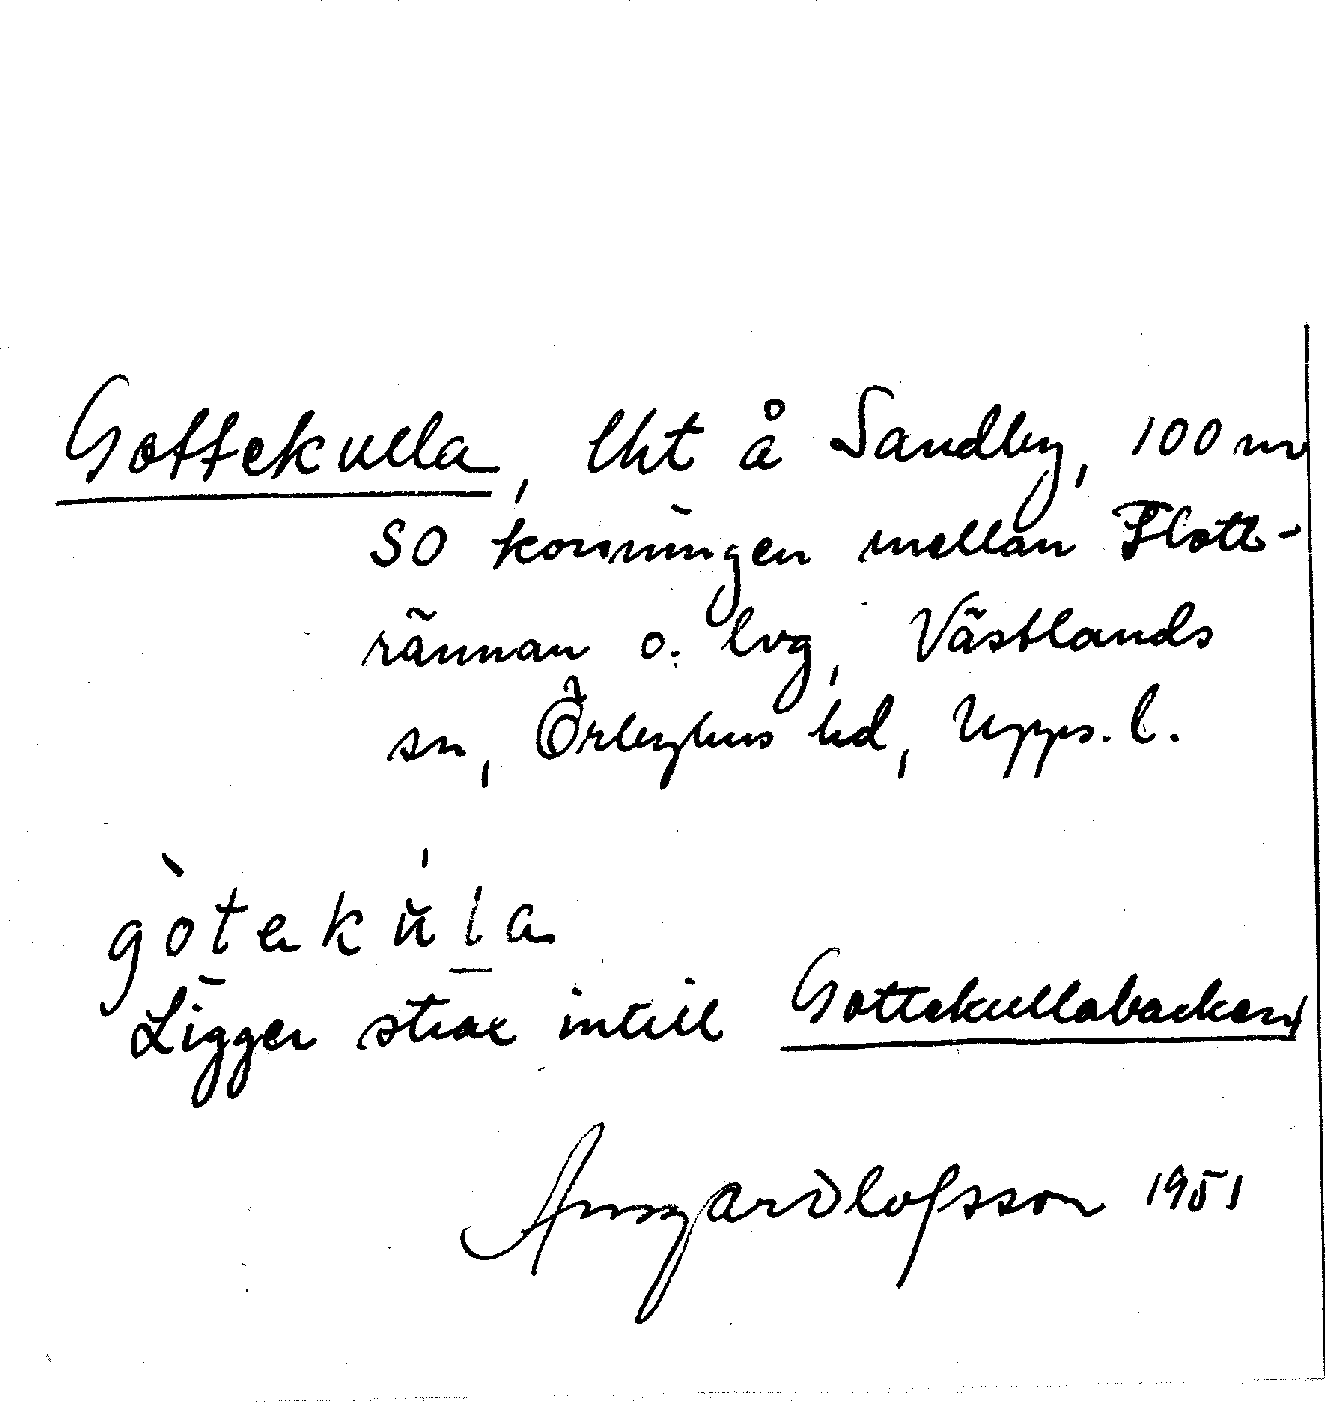 Gottekulla, lht å Sandby, 100 m
SO korsningen mellan Flott-
rännan o. lvg, Västlands
sn, Örbyhus hd, Upps. l.
gòtekŭ́la
Ligger strax intill Gottekullabacken,
Ansgar Olofsson 1951